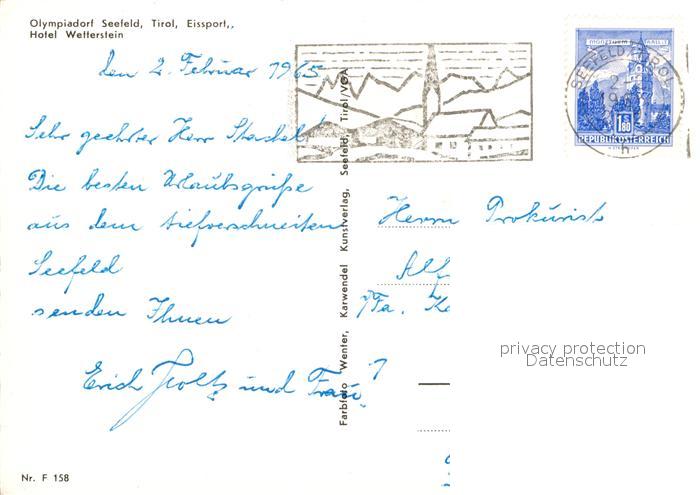 Olympiadorf Seefeld, Tirol, Eissport,,
Hotel Wetterstein
den 2. Februar 1965
Sehr geehrter Herr Stachel!
Die besten Urlaubsgrüße
aus dem tiefverschneiten
Seefeld
senden Ihnen
Erich und Frau
Nr. F 158
Farbfoto Wenter, Karwendel Kunstverlag, Seefeld, Tirol/VGA
MÜNZTURM HALL i. T.
1.80 S
REPUBLIK ÖSTERREICH
SEEFELD TIROL
2
h
Herrn Prokurist
Alf
Fa. Ke
privacy protection
Datenschutz